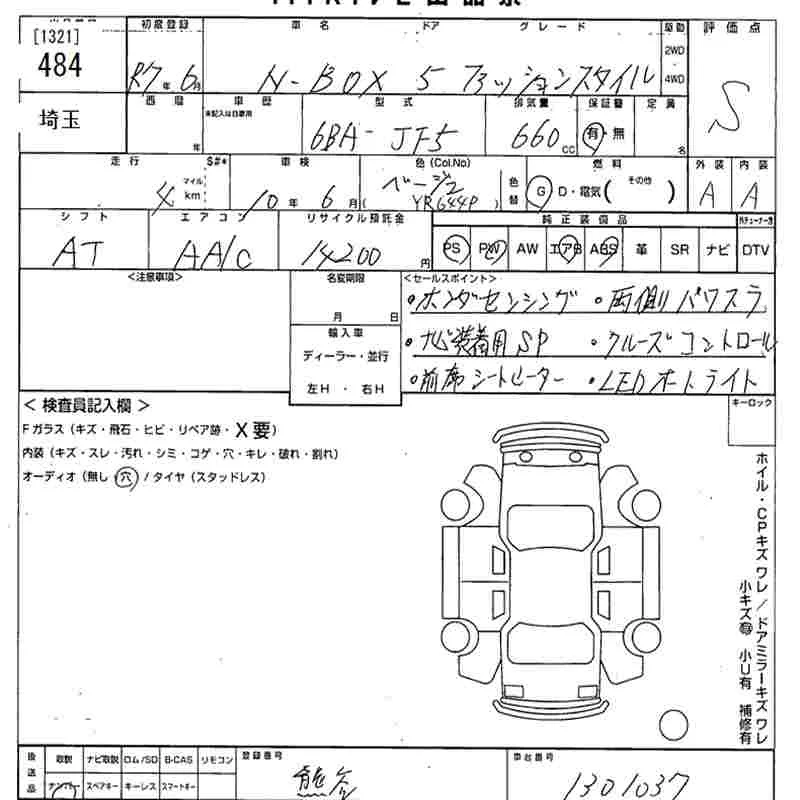 [1321]
484
埼玉
初度登録
車名 ドア グレード
駆動
評価点
R7年6月
N-BOX 5 ファッションスタイル
2WD
4WD
S
西暦
車歴
型式
排気量
保証書
定員
未記入は自家用
年
6BA-JF5
660cc
有・無
名
走行
S#*
車検
色(Col.No)
燃料
外装
内装
4 マイル km
10年6月
ベージュ
(YR644P)
色替
G D・電気(その他)
A
A
シフト
エアコン
リサイクル預託金
純正装備品
AT
AA/C
14200円
PS PW AW エアB ABS 革 SR ナビ DTV
<注意事項>
名変期限
月 日
輸入車
ディーラー・並行
左H・右H
<セールスポイント>
・ホンダセンシング ・両側パワスラ
・ナビ装着用SP ・クルーズコントロール
・前席シートヒーター ・LEDオートライト
キーロック
<検査員記入欄>
Fガラス(キズ・飛石・ヒビ・リペア跡・X要)
内装(キズ・スレ・汚れ・シミ・コゲ・穴・キレ・破れ・割れ)
オーディオ(無し・穴)/タイヤ(スタッドレス)
ホイル・CPキズワレ/ドアミラーキズワレ
小キズ有 小U有 補修有
後送品
取説 ナビ取説 ロム/SD B-CAS リモコン
スペアキー キーレス スマートキー
登録番号
熊谷
車台番号
1301037